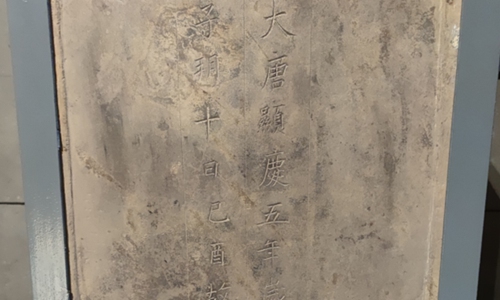 大唐顯慶五年
子朔十日己酉故